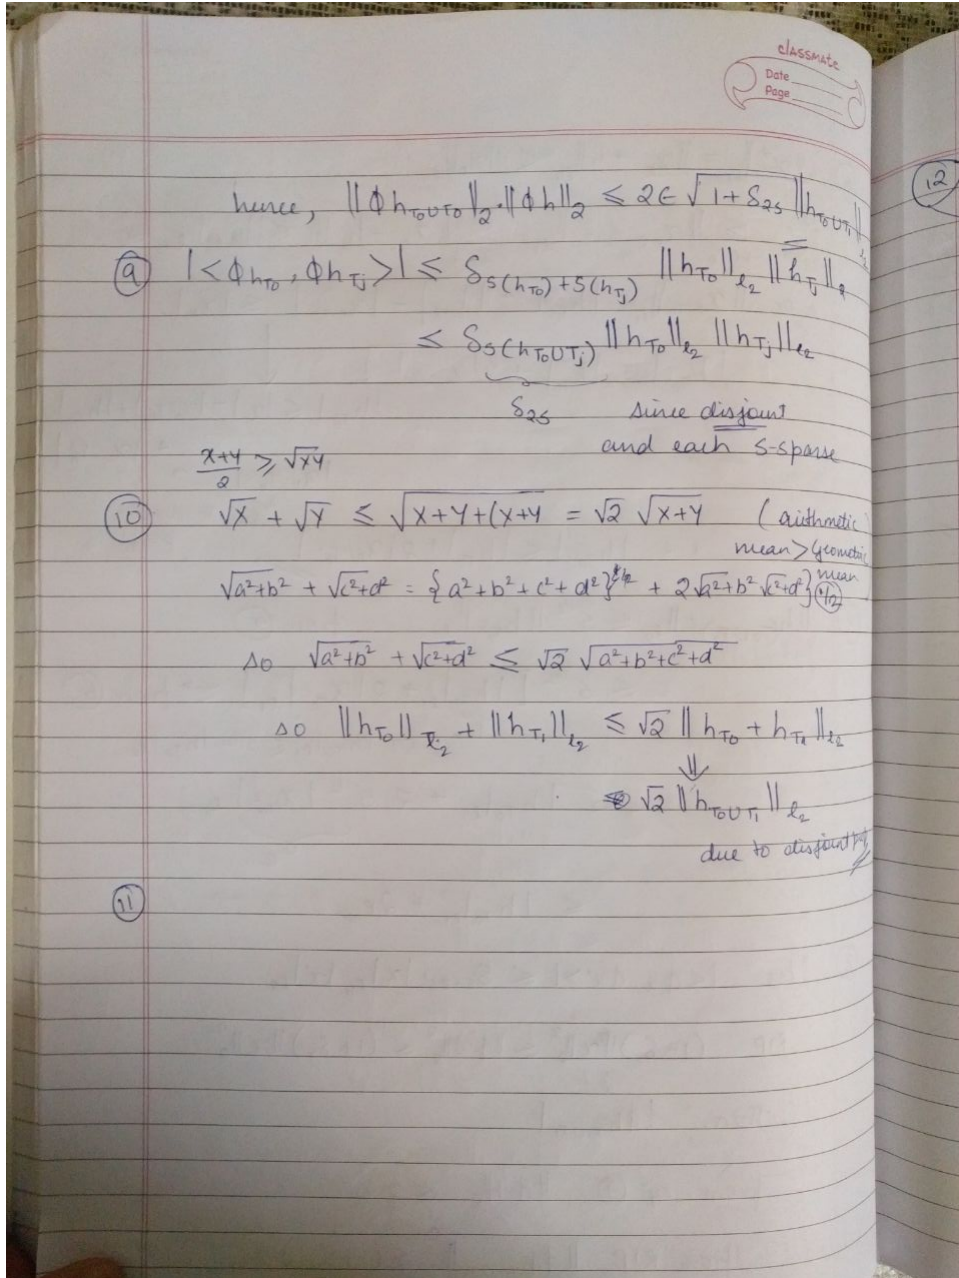 classmate
Date
Page
12
hence, ||Φh_{T0∪T0}||_2·||Φh||_2 ≤ 2ϵ √(1+δ_{2S}) ||h_{T0∪T1}||_{l2}
≤
⑨ |<Φh_{T0}, Φh_{Tj}>| ≤ δ_{S(h_{T0})+S(h_{Tj})} ||h_{T0}||_{l2} ||h_{Tj}||_2
≤ δ_{S(h_{T0∪Tj})} ||h_{T0}||_{l2} ||h_{Tj}||_{l2}
δ_{2S} since disjoint
and each S-sparse
(x+y)/2 ≥ √xy
⑩ √x + √y ≤ √(x+y+(x+y = √2 √(x+y) (arithmetic
mean > Geometric
mean)
√(a²+b²) + √(c²+d²) = {a²+b²+c²+d² + 2√(a²+b²) √(c²+d²)}^{1/2}
so √(a²+b²) + √(c²+d²) ≤ √2 √(a²+b²+c²+d²)
so ||h_{T0}||_{l2} + ||h_{T1}||_{l2} ≤ √2 ||h_{T0} + h_{T1}||_{l2}
⇓
√2 ||h_{T0∪T1}||_{l2}
due to disjoint
⑪